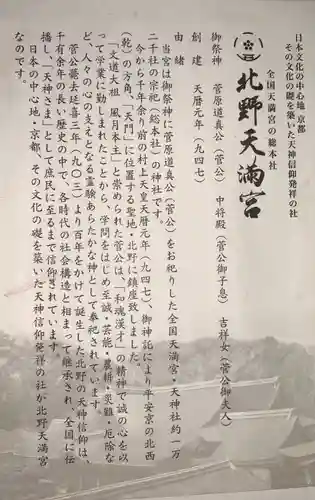 日本文化の中心地 京都
その文化の礎を築いた天神信仰発祥の社
全国天満宮の総本社
北野天満宮
御祭神　菅原道真公（菅公）　中将殿（菅公御子息）　吉祥女（菅公御夫人）
創建　天暦元年（九四七）
由緒
当宮は御祭神に菅原道真公（菅公）をお祀りした全国天満宮・天神社約一万
二千社の宗祀（総本社）の神社です。
今から千年余り前の村上天皇天暦元年（九四七）、御神託により平安京の北西
（乾）の方角、「天門」に位置する聖地・北野に鎮座致しました。
「文道大祖 風月本主」と崇められた菅公は、「和魂漢才」の精神で誠の心を以
って学業に勤しまれたことから、学問をはじめ至誠・芸能・農耕・災難・厄除な
ど、人々の心の支えとなる霊験あらたかな神として奉祀されています。
菅公薨去延喜三年（九〇三）より百年をかけて誕生した北野の天神信仰は、
千有余年の長い歴史の中で、各時代の社会構造と相まって継承され、全国に伝
播し、「天神さま」として庶民に至るまで信仰されています。
日本の中心地・京都、その文化の礎を築いた天神信仰発祥の社が北野天満宮
なのです。